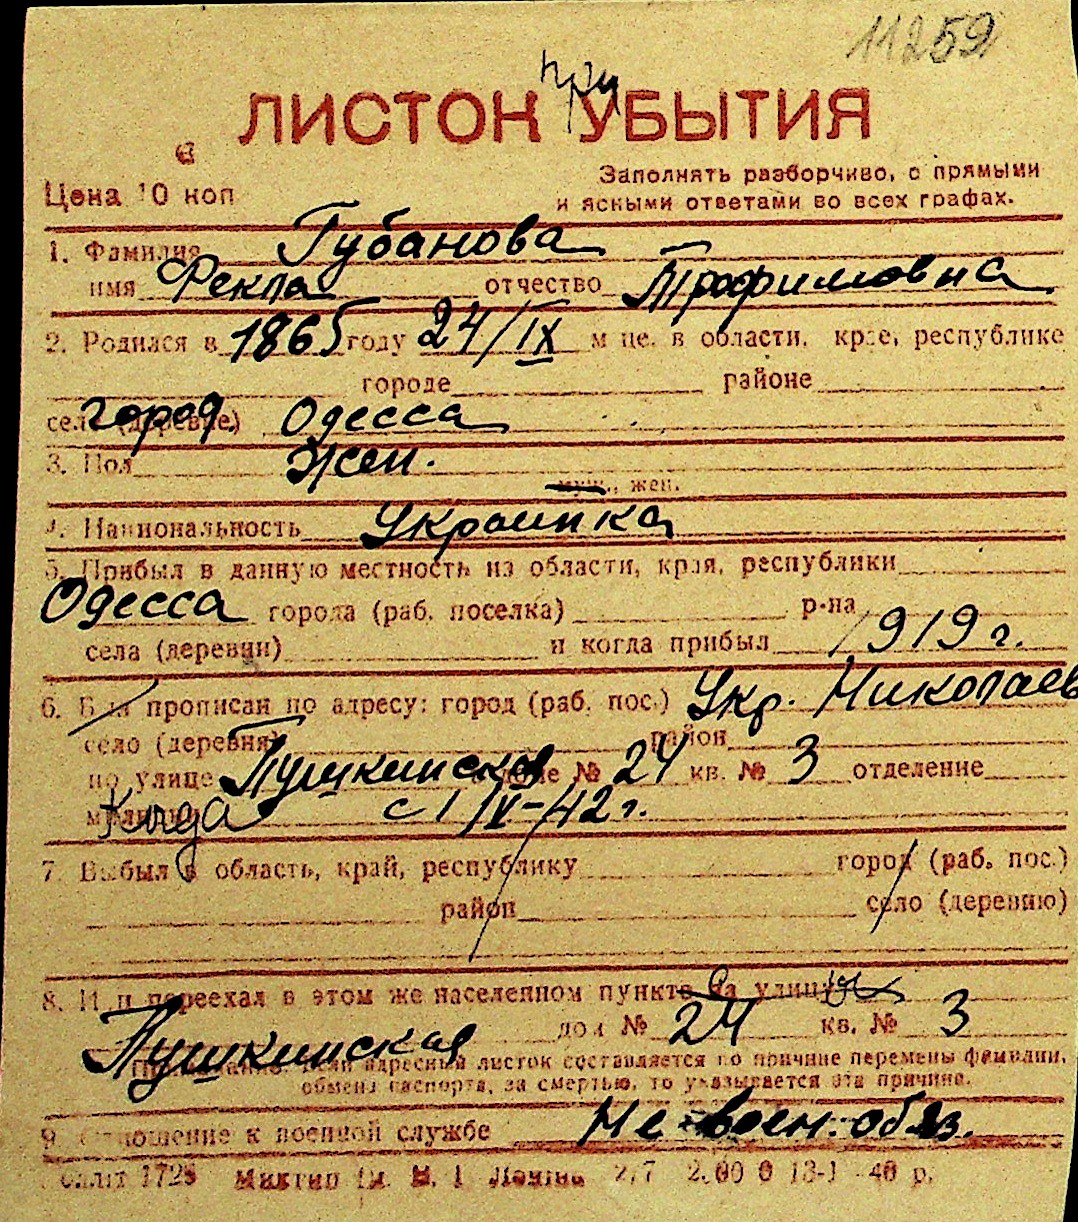 11259
ЛИСТОК при УБЫТИЯ
Цена 10 коп
Заполнять разборчиво, с прямыми
и ясными ответами во всех графах.
1. Фамилия Губанова
имя Фекла отчество Трофимовна
2. Родился в 1865 году 24/IX м-це, в области, крае, республике
городе районе
селе (деревне) город Одесса
3. Пол жен.
муж., жен.
4. Национальность Украинка
5. Прибыл в данную местность из области, края, республики
Одесса города (раб. поселка) р-на
села (деревни) и когда прибыл 1919 г.
6. Был прописан по адресу: город (раб. пос.) Укр. Николаев
село (деревня) район
по улице Пушкинская доме № 24 кв. № 3 отделение
милиции с 1/V-42 г.
7. Выбыл в область, край, республику город (раб. пос.)
район село (деревню)
8. Или переехал в этом же населенном пункте на улицу
Пушкинская дом № 24 кв. № 3
Примечание. Если адресный листок составляется по причине перемены фамилии,
обмена паспорта, за смертью, то указывается эта причина.
9. Отношение к военной службе Не воен. обяз.
1728